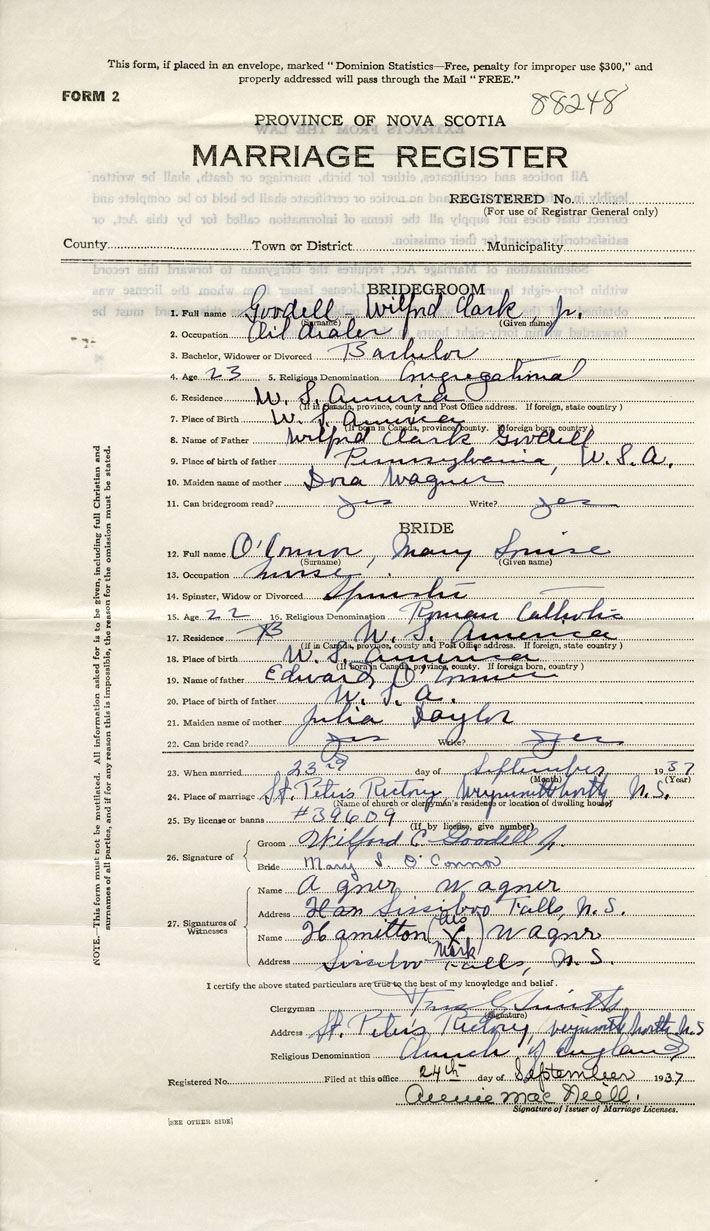 This form, if placed in an envelope, marked "Dominion Statistics—Free, penalty for improper use $300," and
properly addressed will pass through the Mail "FREE."
FORM 2
88248
PROVINCE OF NOVA SCOTIA
MARRIAGE REGISTER
REGISTERED No.
(For use of Registrar General only)
County Town or District Municipality
BRIDEGROOM
1. Full name Goodell - Wilfrd Clark Jr.
(Surname) (Given name)
2. Occupation Oil dealer
3. Bachelor, Widower or Divorced Bachelor
4. Age 23 5. Religious Denomination Congregational
6. Residence U. S. America
(If in Canada, province, county and Post Office address. If foreign, state country)
7. Place of Birth U. S. America
(If born in Canada, province, county. If foreign born, country)
8. Name of Father Wilfrd Clark Goodell
9. Place of birth of father Pennsylvania, U. S. A.
10. Maiden name of mother Dora Wagner
11. Can bridegroom read? yes Write? yes
BRIDE
12. Full name O'Connor, Mary Louise
(Surname) (Given name)
13. Occupation nurse.
14. Spinster, Widow or Divorced Spinster
15. Age 22 16. Religious Denomination Roman Catholic
17. Residence U. S. America
(If in Canada, province, county and Post Office address. If foreign, state country)
18. Place of birth U. S. America
(If born in Canada, province, county. If foreign born, country)
19. Name of father Edward O'Connor
20. Place of birth of father U. S. A.
21. Maiden name of mother Julia Taylor
22. Can bride read? yes Write? yes
23. When married 23rd day of September 1937
(Month) (Year)
24. Place of marriage St. Peter's Rectory Weymouth North N.S.
(Name of church or clergyman's residence or location of dwelling house)
25. By license or banns #39609
(If by license, give number)
26. Signature of
Groom Wilford C Goodell Jr.
Bride Mary L. O'Connor
27. Signatures of Witnesses
Name Agner Wagner
Address Sissiboo Falls, N.S.
Name Hamilton (his X Mark) Wagner
Address Sissiboo Falls, N.S.
I certify the above stated particulars are true to the best of my knowledge and belief.
Clergyman
(Signature)
Address St. Peter's Rectory, Weymouth North N.S
Religious Denomination Church of England
Registered No. Filed at this office 24th day of September 1937
Annie MacNeill.
Signature of Issuer of Marriage Licenses.
[SEE OTHER SIDE]
NOTE.—This form must not be mutilated. All information asked for is to be given, including full Christian and
surnames of all parties, and if for any reason this is impossible, the reason for the omission must be stated.